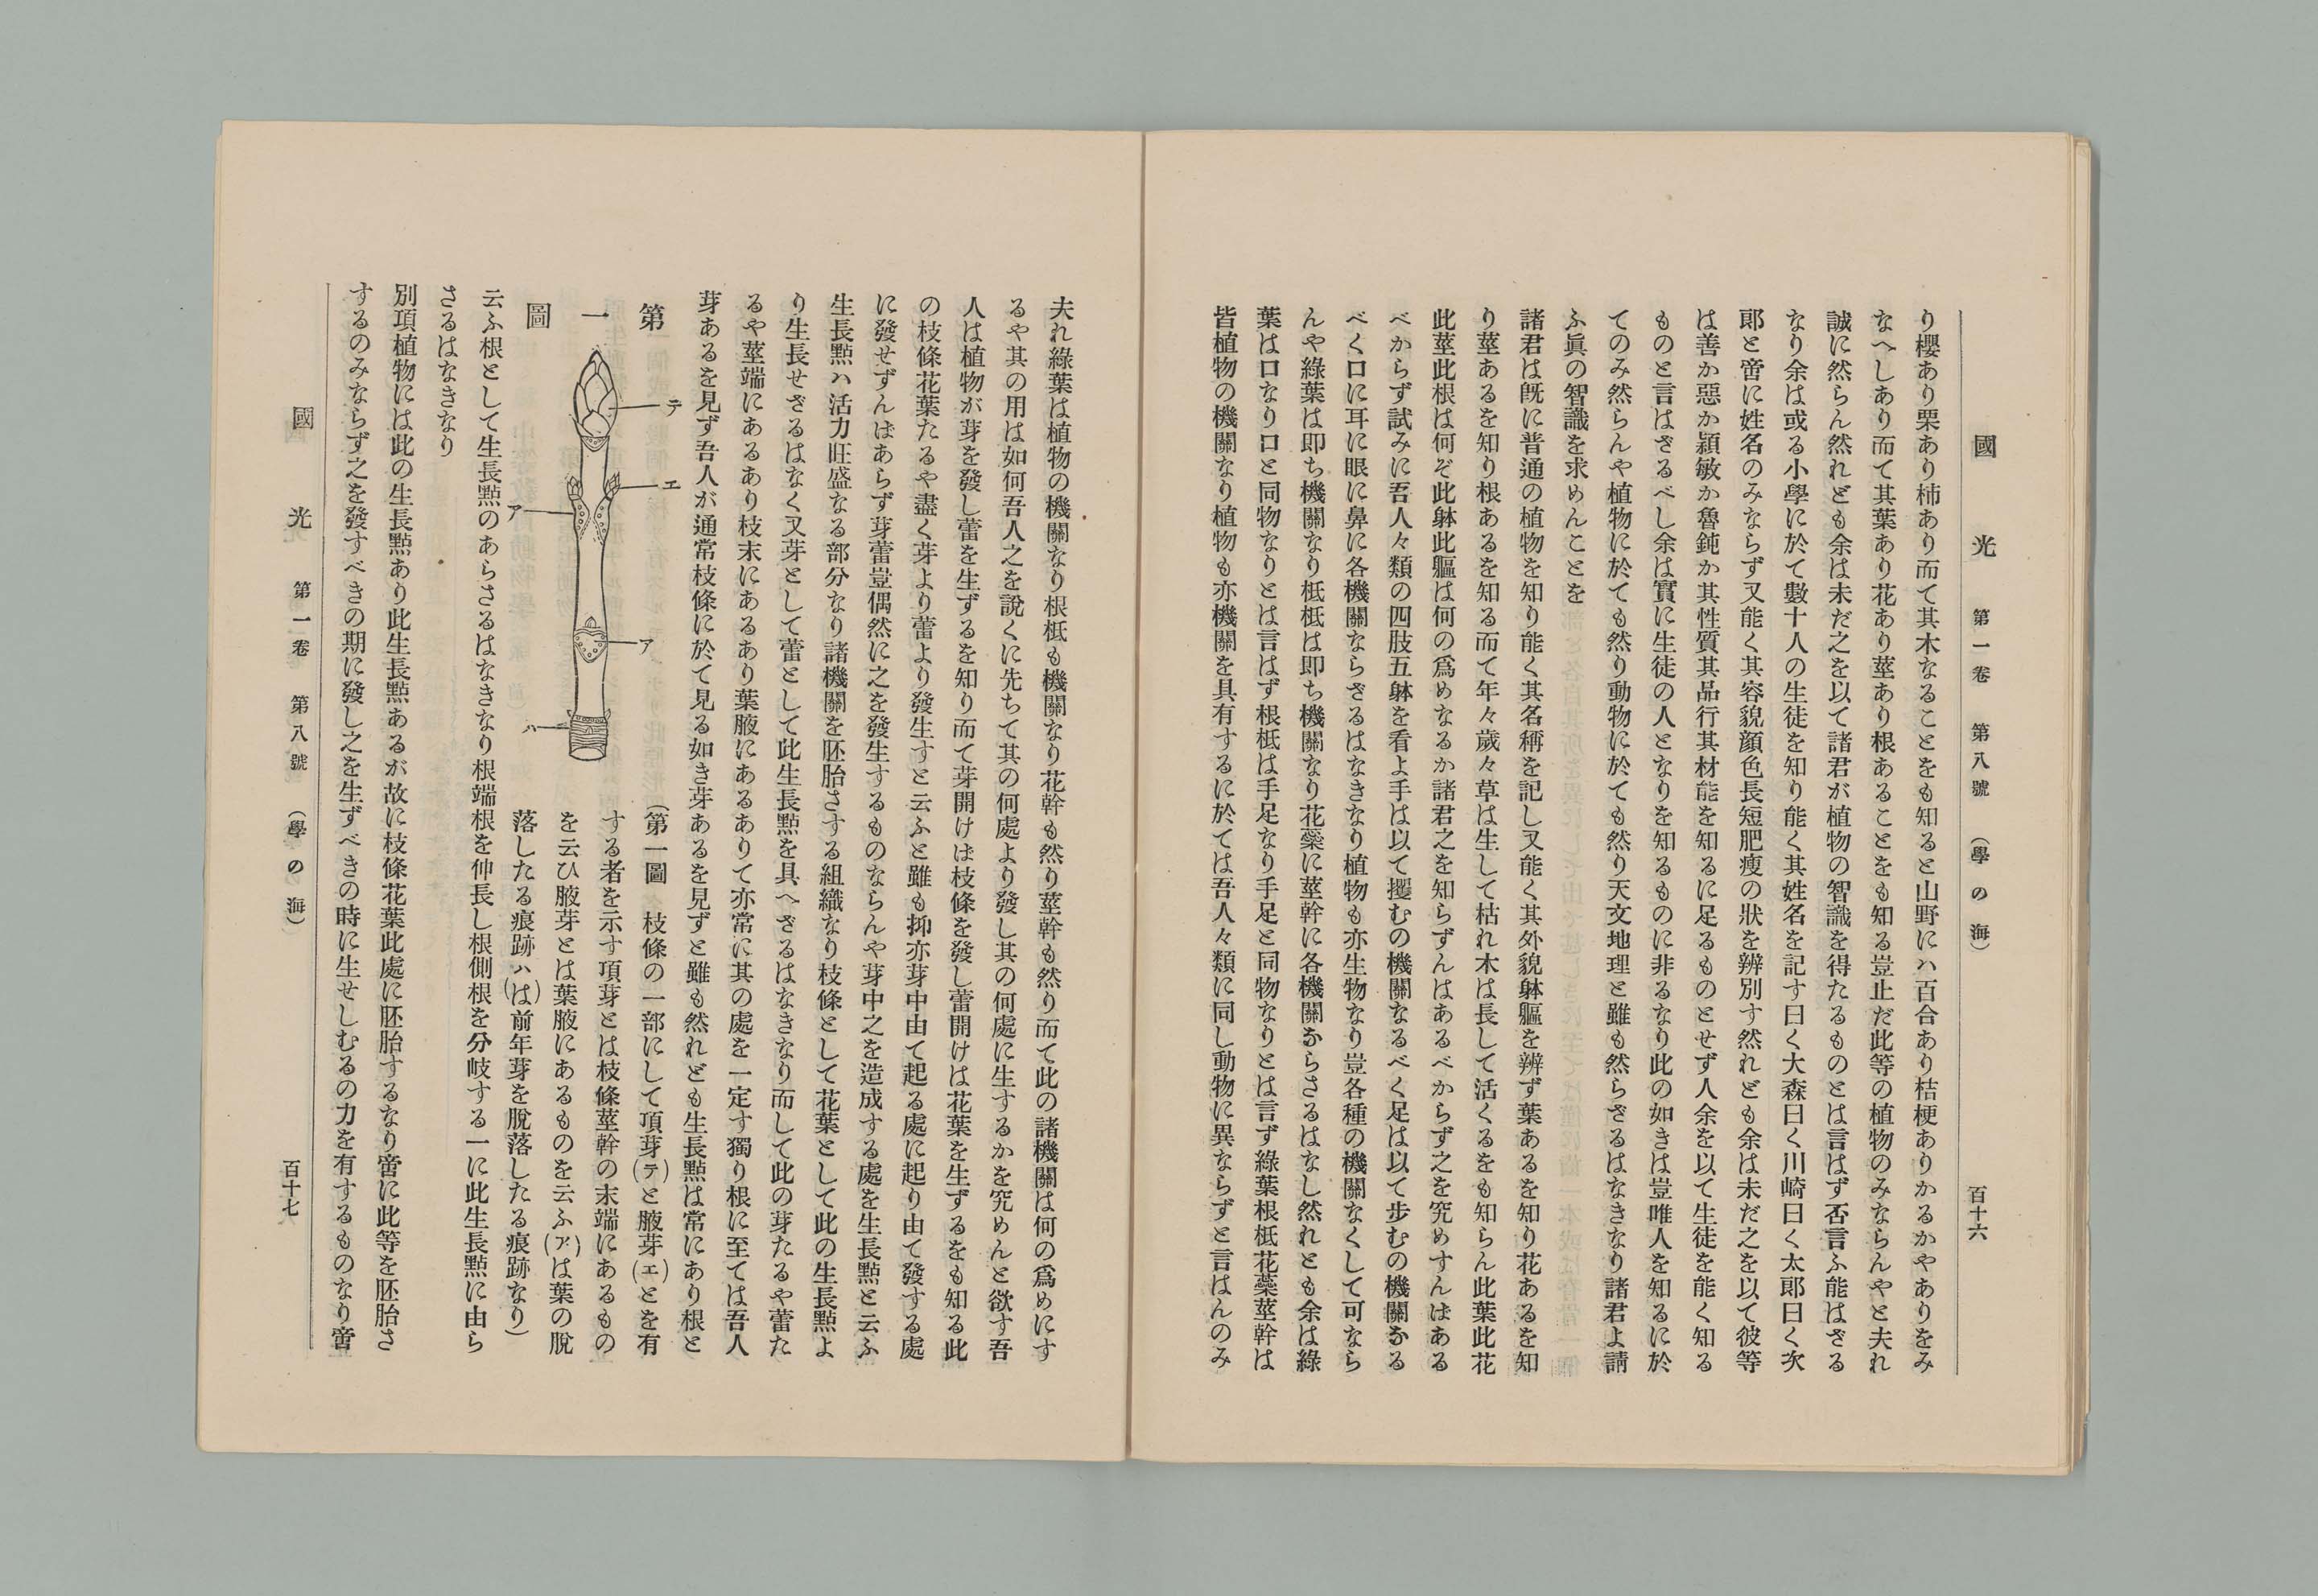 國光 第一卷 第八號 (學の海) 百十六
り櫻あり栗あり柿あり而て其木なることをも知ると山野にハ百合あり桔梗ありかるかやありをみ
なへしあり而て其葉あり花あり莖あり根あることをも知る豈止だ此等の植物のみならんやと夫れ
誠に然らん然れども余は未だ之を以て諸君が植物の智識を得たるものとは言はず否言ふ能はざる
なり余は或る小學に於て數十人の生徒を知り能く其姓名を記す曰く大森曰く川崎曰く太郎曰く次
郎と啻に姓名のみならず又能く其容貌顔色長短肥瘦の狀を辨別す然れども余は未だ之を以て彼等
は善か惡か穎敏か魯鈍か其性質其品行其材能を知るに足るものとせず人余を以て生徒を能く知る
ものと言はざるべし余は實に生徒の人となりを知るものに非るなり此の如きは豈唯人を知るに於
てのみ然らんや植物に於ても然り動物に於ても然り天文地理と雖も然らざるはなきなり諸君よ請
ふ眞の智識を求めんことを
諸君は旣に普通の植物を知り能く其名稱を記し又能く其外貌躰軀を辨ず葉あるを知り花あるを知
り莖あるを知り根あるを知る而て年々歲々草は生して枯れ木は長して活くるをも知らん此葉此花
此莖此根は何ぞ此躰此軀は何の爲めなるか諸君之を知らずんはあるべからず之を究めすんはある
べからず試みに吾人々類の四肢五躰を看よ手は以て攫むの機關なるべく足は以て步むの機關なる
べく口に耳に眼に鼻に各機關ならざるはなきなり植物も亦生物なり豈各種の機關なくして可なら
んや綠葉は即ち機關なり柢柢は即ち機關なり花蘂に莖幹に各機關ならさるはなし然れとも余は綠
葉は口なり口と同物なりとは言はず根柢は手足なり手足と同物なりとは言ず綠葉根柢花蘂莖幹は
皆植物の機關なり植物も亦機關を具有するに於ては吾人々類に同し動物に異ならずと言はんのみ
夫れ綠葉は植物の機關なり根柢も機關なり花幹も然り莖幹も然り而て此の諸機關は何の爲めにす
るや其の用は如何吾人之を說くに先ちて其の何處より發し其の何處に生するかを究めんと欲す吾
人は植物が芽を發し蕾を生ずるを知り而て芽開けは枝條を發し蕾開けは花葉を生ずるをも知る此
の枝條花葉たるや盡く芽より蕾より發生すと云ふと雖も抑亦芽中由て起る處に起り由て發する處
に發せずんはあらず芽蕾豈偶然に之を發生するものならんや芽中之を造成する處を生長點と云ふ
生長點ハ活力旺盛なる部分なり諸機關を胚胎さする組織なり枝條として花葉として此の生長點よ
り生長せざるはなく又芽として蕾として此生長點を具へざるはなきなり而して此の芽たるや蕾た
るや莖端にあるあり枝末にあるあり葉腋にあるありて亦常に其の處を一定す獨り根に至ては吾人
芽あるを見ず吾人が通常枝條に於て見る如き芽あるを見ずと雖も然れども生長點は常にあり根と
第一圖
テ
エ
ア
ア
ハ
(第一圖 枝條の一部にして頂芽(テ)と腋芽(エ)とを有
する者を示す頂芽とは枝條莖幹の末端にあるもの
を云ひ腋芽とは葉腋にあるものを云ふ(ア)は葉の脫
落したる痕跡ハ(は)前年芽を脫落したる痕跡なり)
云ふ根として生長點のあらさるはなきなり根端根を伸長し根側根を分岐する一に此生長點に由ら
さるはなきなり
別項植物には此の生長點あり此生長點あるが故に枝條花葉此處に胚胎するなり啻に此等を胚胎さ
するのみならず之を發すべきの期に發し之を生ずべきの時に生せしむるの力を有するものなり啻
國光 第一卷 第八號 (學の海) 百十七